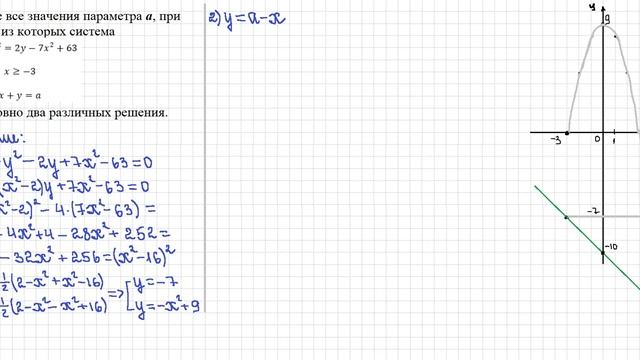 е все значения параметра a, при
из которых система
² = 2y − 7x² + 63
x ≥ −3
x + y = a
овно два различных решения.
ше:
y² − 2y + 7x² − 63 = 0
(x² − 2)y + 7x² − 63 = 0
x² − 2)² − 4·(7x² − 63) =
− 4x² + 4 − 28x² + 252 =
− 32x² + 256 = (x² − 16)²
½(2 − x² + x² − 16)
½(2 − x² − x² + 16)
=> [ y = −7
y = −x² + 9
2) y = a − x
y
9
−3
0
1
−7
−10